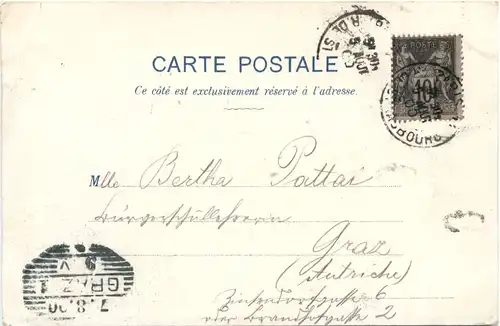 CARTE POSTALE
Ce côté est exclusivement réservé à l'adresse.
POSTE
10
Mlle Bertha Pattai
Bürgerschullehrerin
Graz
(Autriche)
Zinzendorfgasse 6
oder Brandhofgasse 2
GRAZ 1
7.8.00
9.V